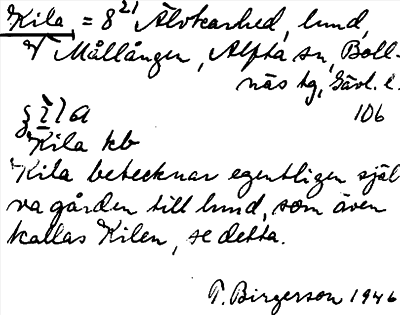 Kila = 8²¹ Älvkarhed, lund,
V Mållången, Alfta sn, Boll-
näs tg, Gävl. l.
106
Kila kb
Kila betecknar egentligen själ
va gården till lund, som även
kallas Kilen, se detta.
T. Birgerson 1946